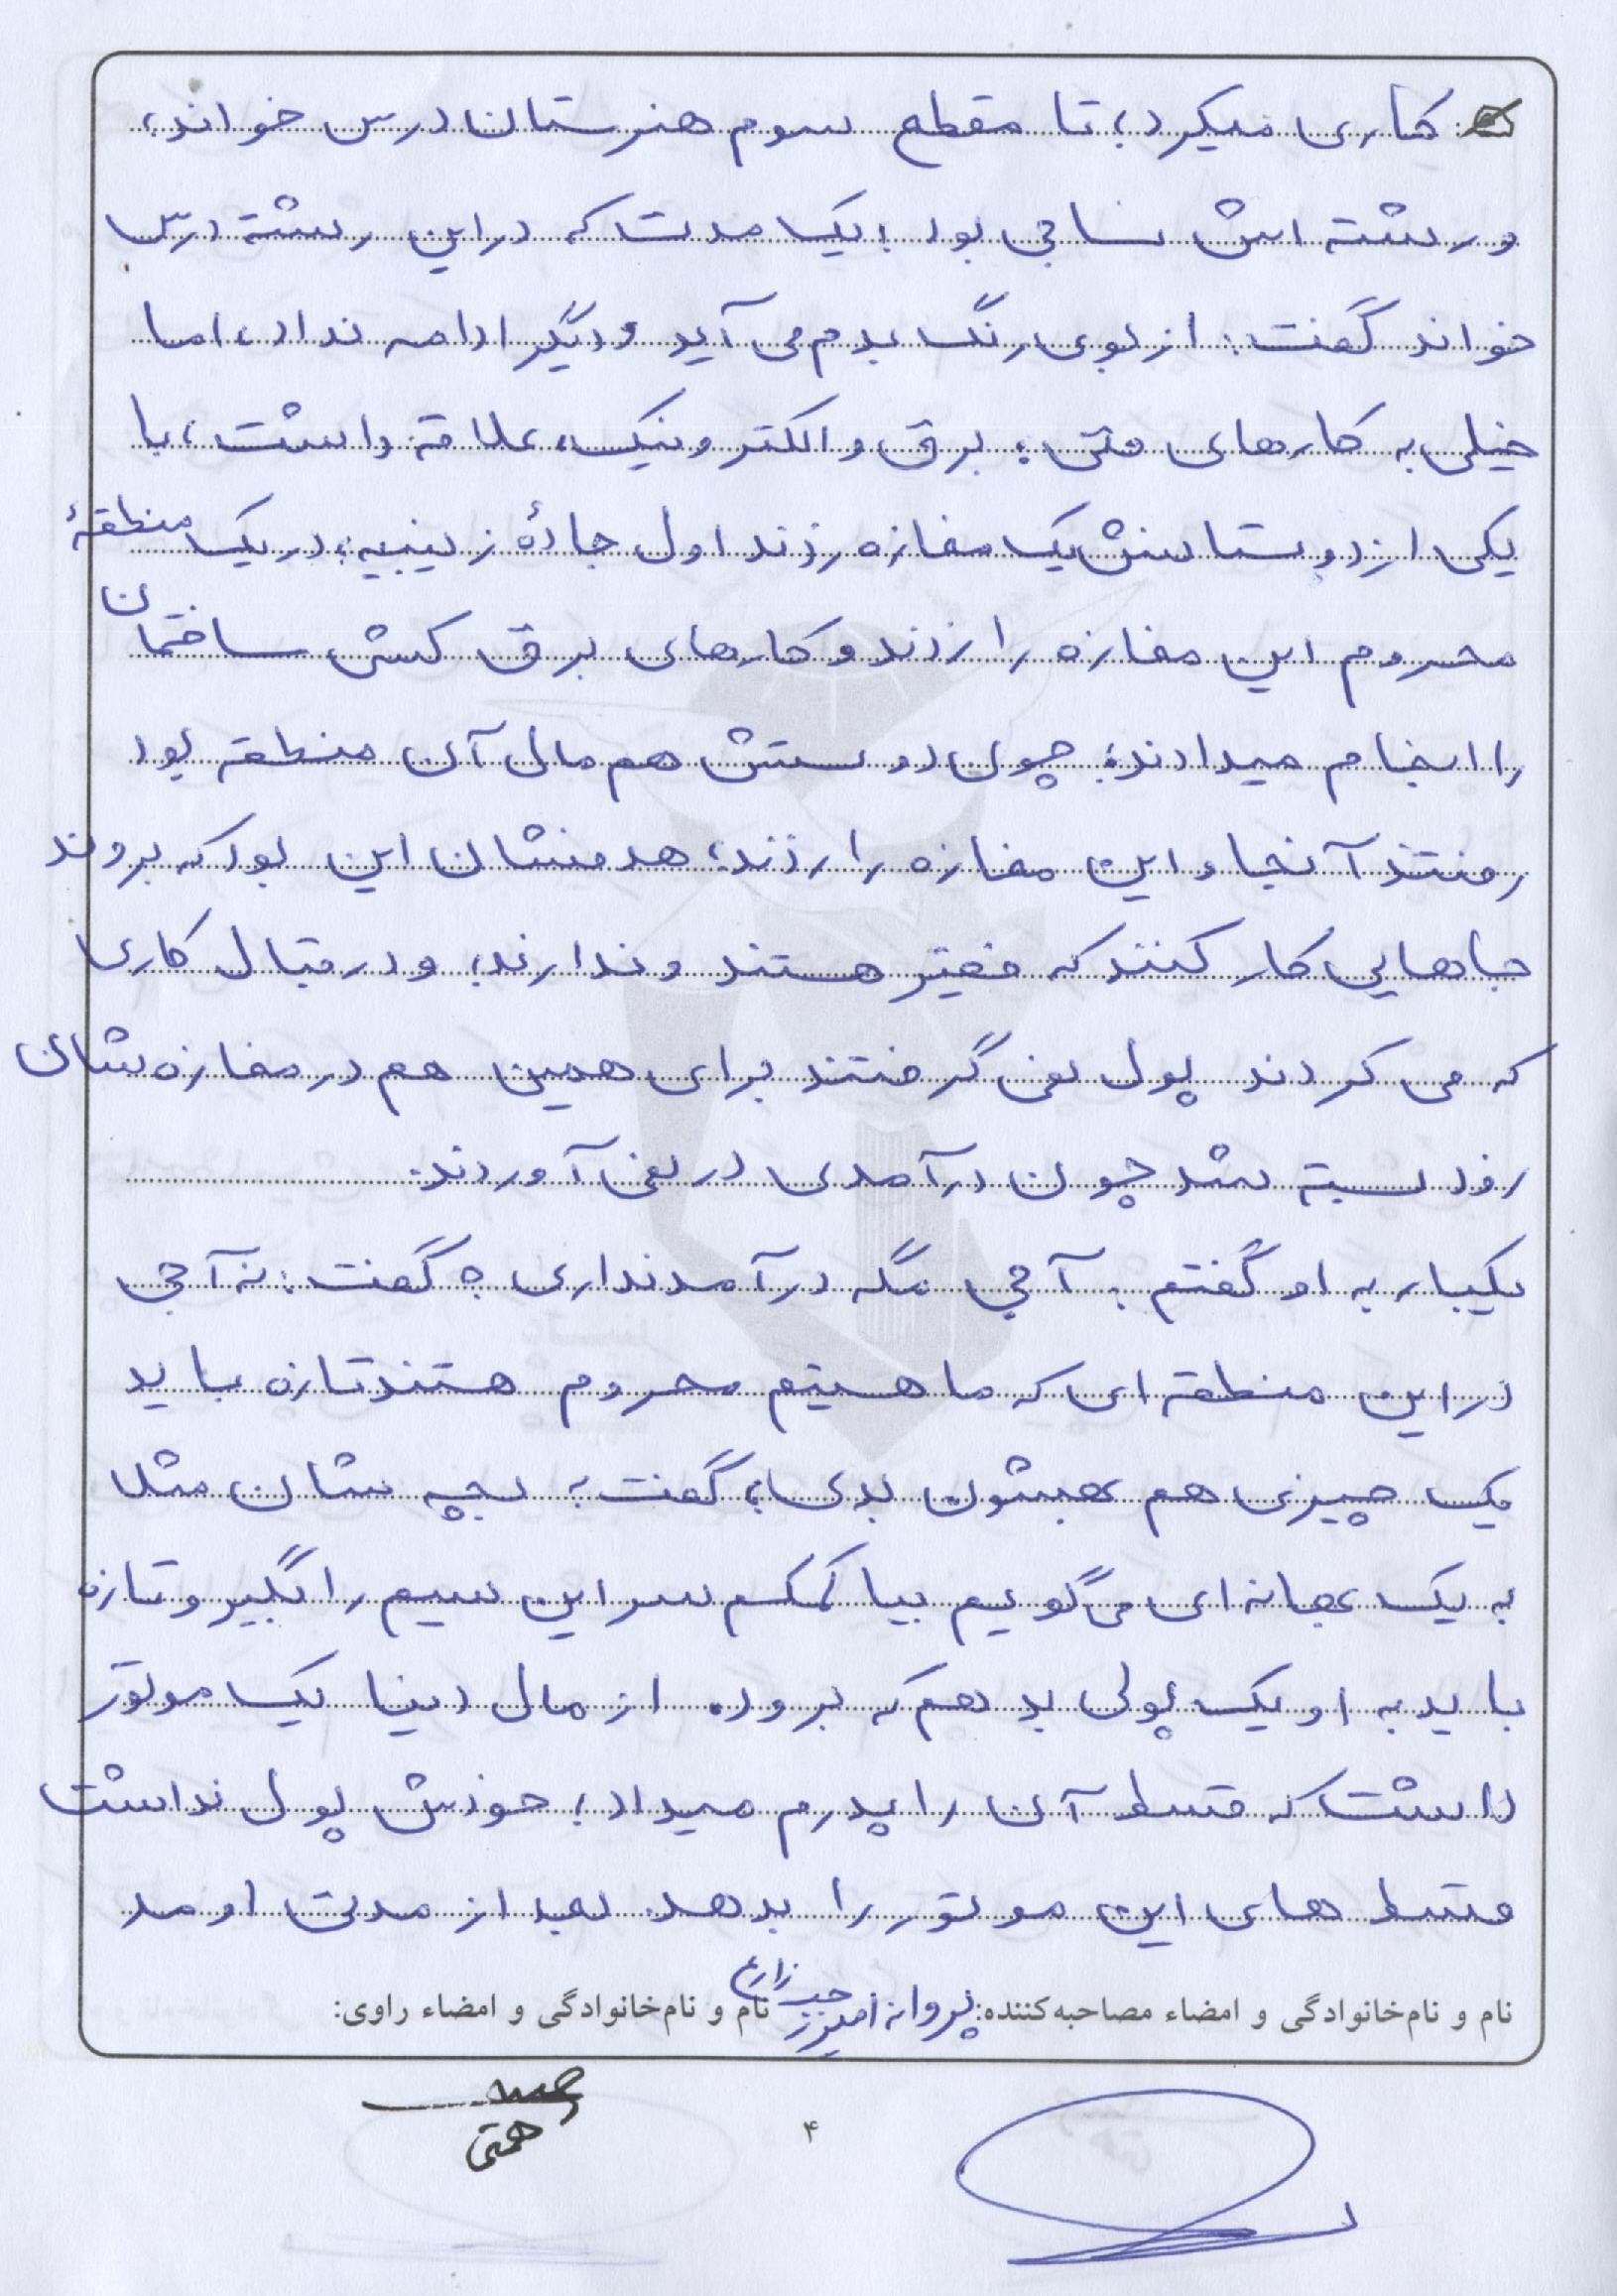 کاری میکرد؛ تا مقطع سوم هنرستان درس خواند،
و رشته اش نساجی بود؛ یک مدت که در این رشته درس
خواند گفت: از بوی رنگ بدم می آید و دیگر ادامه نداد، اما
خیلی به کارهای فنی؛ برق و الکترونیک، علاقه داشت، با
یکی از دوستانش یک مغازه زدند اول جادۀ زینبیه؛ در یک منطقۀ
محروم این مغازه را زدند و کارهای برق کشی ساختمان
را انجام میدادند؛ چون دوستش هم مال آن منطقه بود
رفتند آنجا و این مغازه را زدند؛ هدفشان این بود که بروند
جاهایی کار کنند که فقیر هستند و ندارند؛ و در قبال کاری
که می کردند پول نمی گرفتند برای همین هم در مغازه شان
زود بسته شد چون درآمدی در نمی آوردند.
یکبار به او گفتم: آجی مگه درآمد نداری؟ گفت: نه آجی
در این منطقه ای که ما هستیم محروم هستند تازه باید
یک چیزی هم بهشون بدی؛ گفت: بچه شان مثلا
به یک بهانه ای می گوییم بیا کمکم سر این سیم را بگیر و تازه
باید به او یک پولی بدهم که برود. از مال دنیا یک موتور
داشت که قسط آن را پدرم میداد؛ خودش پول نداشت
قسط های این موتور را بدهد. بعد از مدتی اومد
نام و نام‌خانوادگی و امضاء مصاحبه‌کننده: پروانه نام و نام‌خانوادگی و امضاء راوی:
همتی
۴